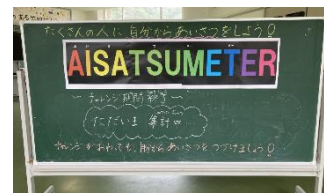 たくさんの人に自分からあいさつをしよう♀
AISATSUMETER
～チャレンジ期間終了～
ただいま 集計中
チャレンジがおわっても、自分からあいさつをつづけましょう♀